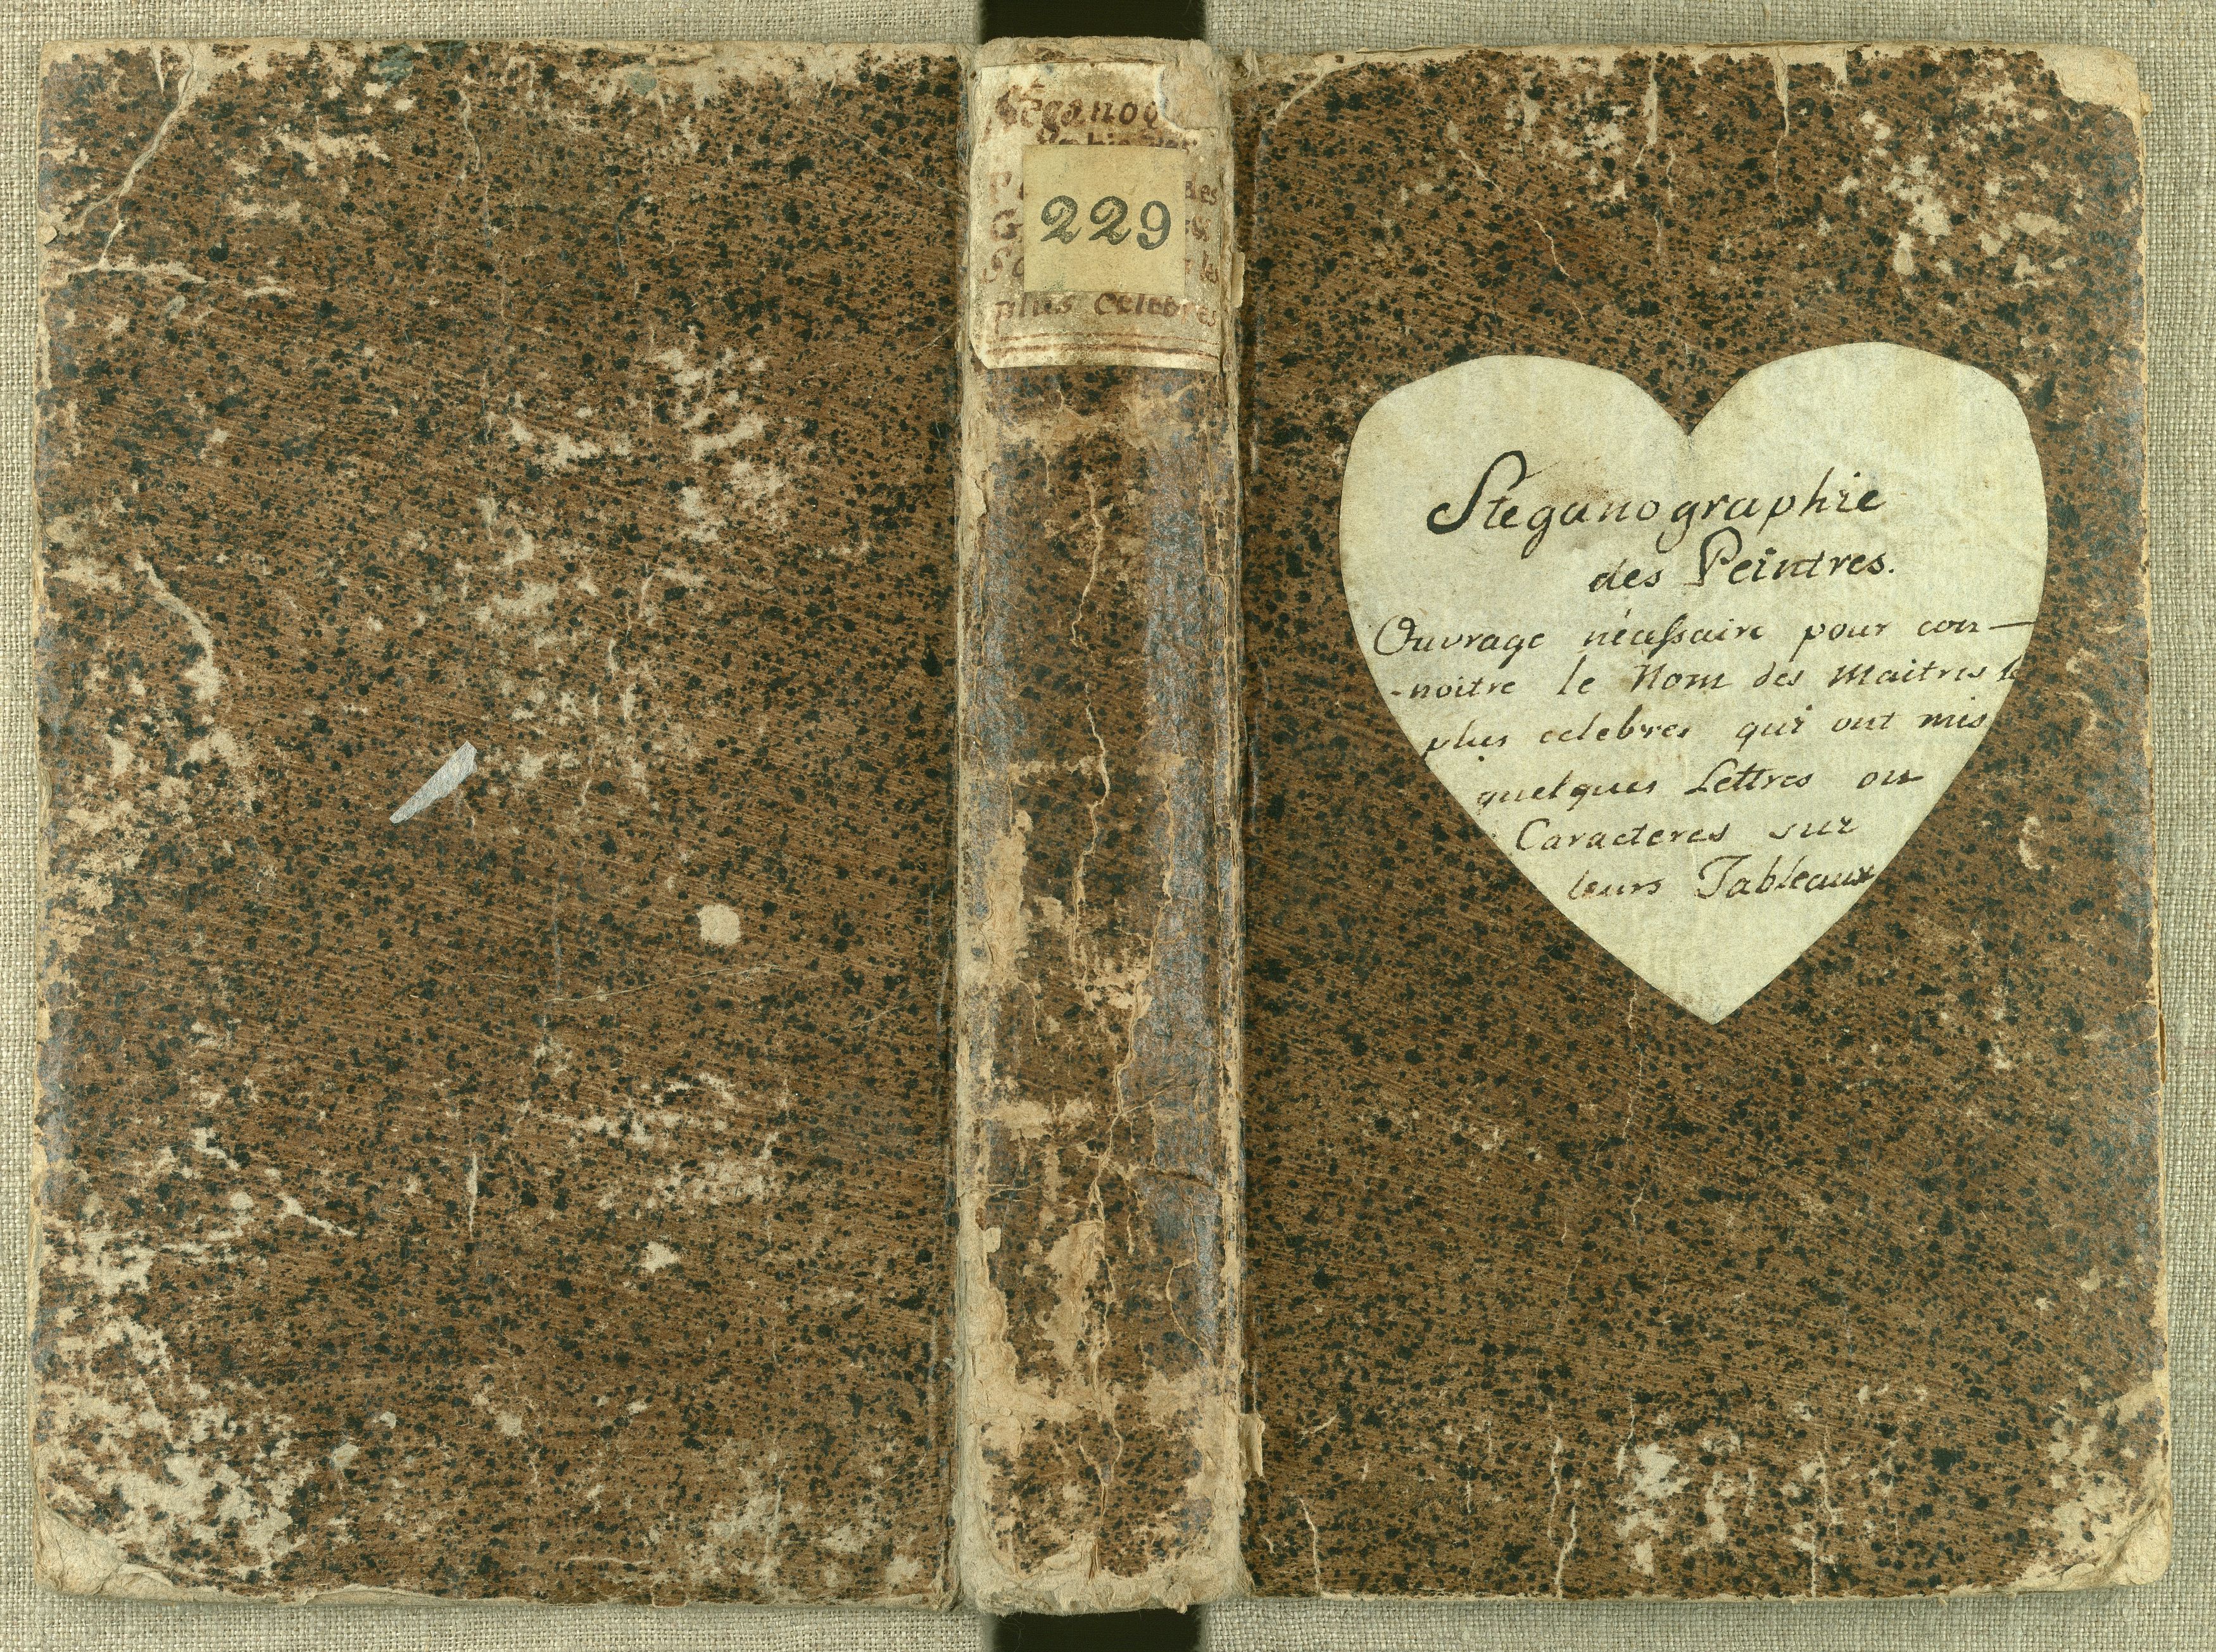 Stéganog
des
229
les
plus celebres
Steganographie
des Peintres.
Ouvrage nécessaire pour con-
-noitre le Nom des Maitres le
plus celebres qui ont mis
quelques Lettres ou
Caracteres sur
leurs Tableaux